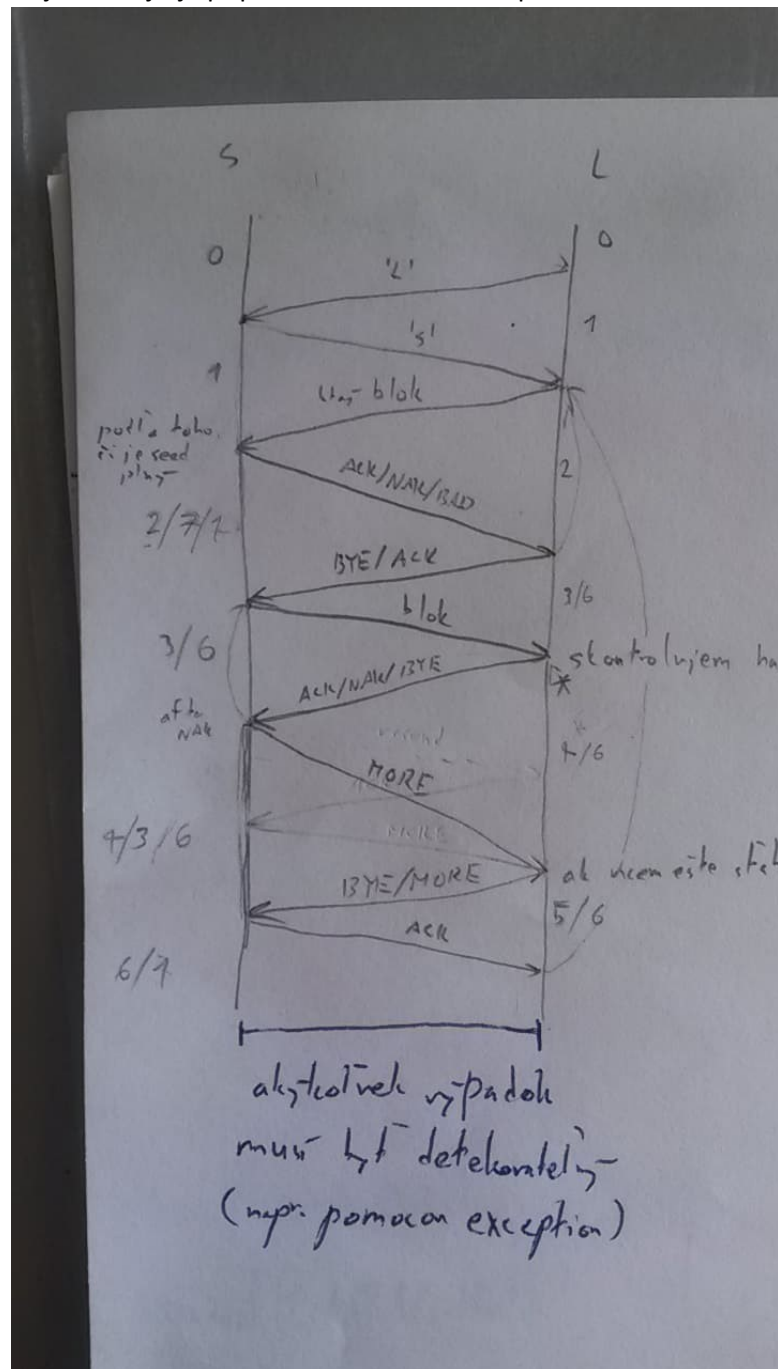 S L
0 0
'L'
1
's'
1
blok
podľa toho
či je seed
plný
ACK/NAK/BAD
2
2/7/1
BYE/ACK
3/6
blok
3/6
skontrolujem
ACK/NAK/BYE
after
NAK
4/6
MORE
4/3/6
MORE
ak ešte
BYE/MORE
5/6
ACK
6/1
akýkoľvek výpadok
musí byť detekovateľný
(napr. pomocou exception)